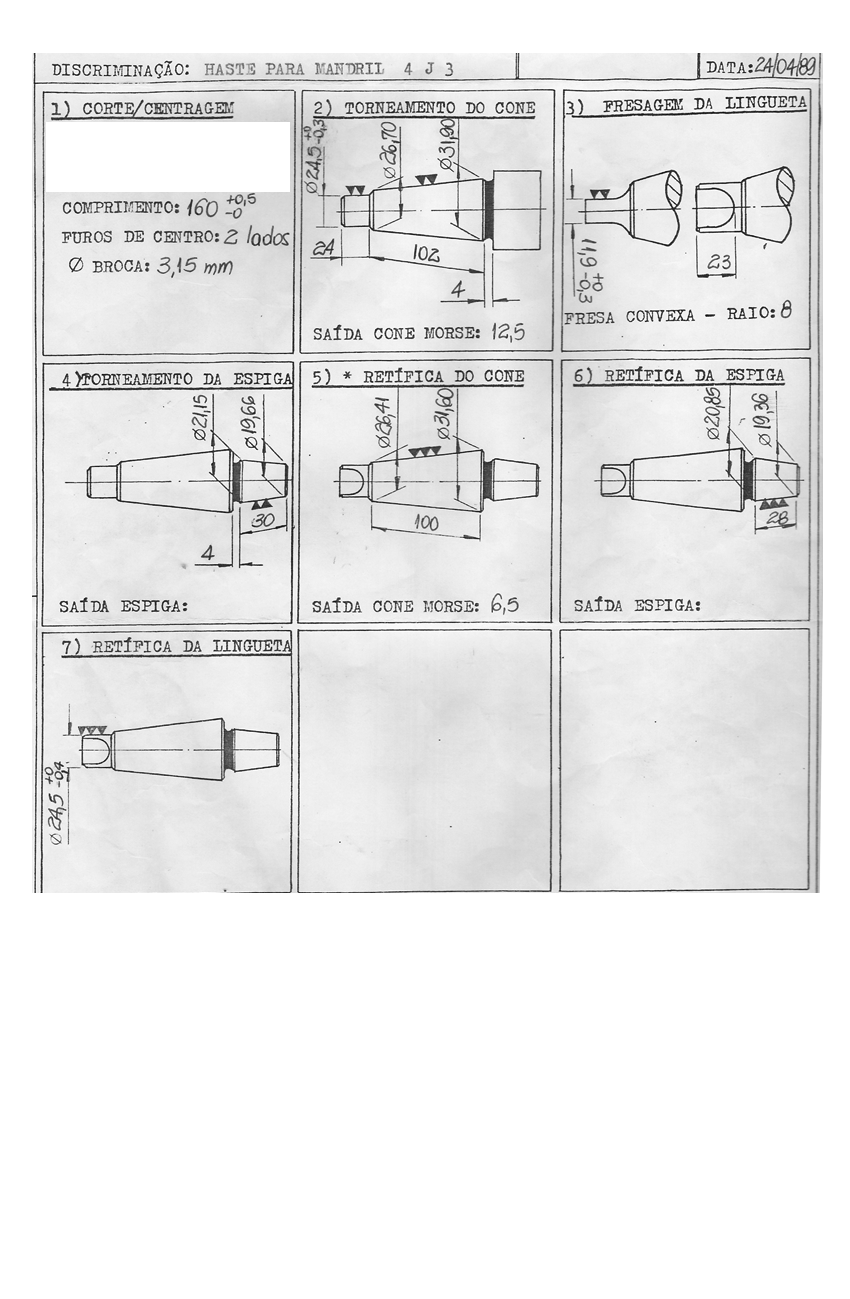 DISCRIMINAÇÃO: HASTE PARA MANDRIL 4 J 3
DATA: 24/04/89
1) CORTE/CENTRAGEM
COMPRIMENTO: 160 +0,5 -0
FUROS DE CENTRO: 2 lados
Ø BROCA: 3,15 mm
2) TORNEAMENTO DO CONE
Ø24,5 +0 -0,3
Ø26,70
Ø31,90
24
102
4
SAÍDA CONE MORSE: 12,5
3) FRESAGEM DA LINGUETA
11,9 +0 -0,3
23
FRESA CONVEXA - RAIO: 8
4) TORNEAMENTO DA ESPIGA
Ø21,15
Ø19,66
30
4
SAÍDA ESPIGA:
5) * RETÍFICA DO CONE
Ø26,41
Ø31,60
100
SAÍDA CONE MORSE: 6,5
6) RETÍFICA DA ESPIGA
Ø20,85
Ø19,36
28
SAÍDA ESPIGA:
7) RETÍFICA DA LINGUETA
Ø24,5 +0 -0,4